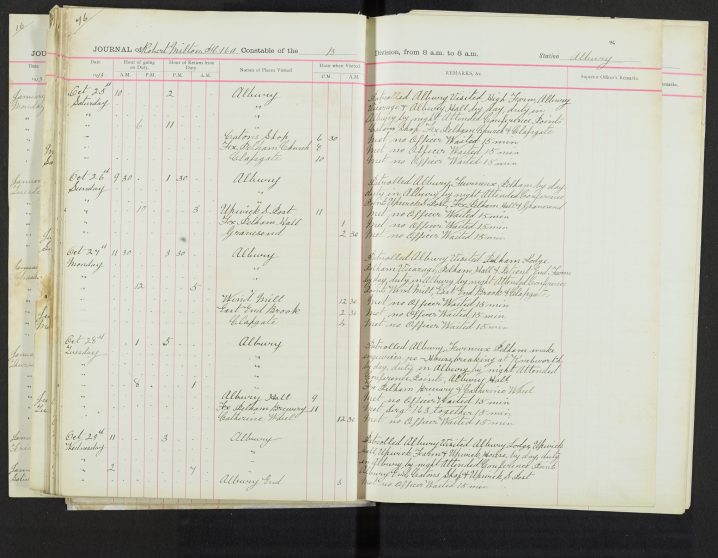 76
JOURNAL of Robert Milton 160 Constable of the 13 Division, from 8 a.m. to 8 a.m. Station Albury
Date Hour of going on Duty. Hour of Return from Duty. Names of Places Visited Hour when Visited REMARKS, &c. Superior Officer's Remarks.
1913 A.M. P.M. A.M. P.M. P.M. A.M.
Oct 25th 10 2 Albury
Saturday
Patrolled Albury Visited High Farm Albury
Vicarage & Albury Hall by day, duty in
Albury by night Attended Conference Points
6 11
Eatons Shop, Fx. Pelham Church & Clapgate
Eatons Shop 6 30 Met no Officer Waited 15 min
Fx. Pelham Church 8 Met no Officer Waited 15 min
Clapgate 10 Met no Officer Waited 15 min
Oct 26th 9 30 1 30 Albury
Sunday
Patrolled Albury, Furneaux Pelham by day
duty in Albury by night Attended Conference
Points Upwick S. Post, Fx. Pelham Hall & Gravesend
10 3 Upwick S. Post 11 Met no Officer Waited 15 min
Fx. Pelham Hall 1 Met no Officer Waited 15 min
Gravesend 2 30 Met no Officer Waited 15 min
Oct 27th 11 30 3 30 Albury
Monday
Patrolled Albury Visited Pelham Lodge
Pelham Vicarage, Pelham Hall & Patient End Farm
by day, duty in Albury by night Attended Conference
12 5
Points Wind Mill, East End Brook & Clapgate
Wind Mill 12 30 Met no Officer Waited 15 min
East End Brook 2 30 Met no Officer Waited 15 min
Clapgate 4 Met no Officer Waited 15 min
Oct 28th 1 5 Albury
Tuesday
Patrolled Albury, Furneaux Pelham make
enquiries re Housebreaking at Knebworth
by day, duty in Albury by night Attended
Conference Points, Albury Hall
8 1
Fx Pelham Brewery & Catherine Wheel
Albury Hall 9 Met no Officer Waited 15 min
Fx. Pelham Brewery 11 Met Serg 163 together 15 min
Catherine Wheel 12 30 Met no Officer Waited 15 min
Oct 29th 11 3 Albury
Wednesday
Patrolled Albury Visited Albury Lodge, Upwick
Hall, Upwick Farm & Upwick House, by day, duty
in Albury by night Attended Conference Points
2 7
Albury End, Eatons Shop & Upwick S. Post
Albury End 3 Met no Officer Waited 15 min